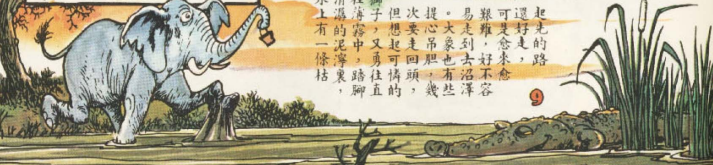 起先的路
還好走，
可是愈來愈
艱難，好不容
易走到去沼澤
。大象也有些
提心吊胆，幾
次要走回頭，
但想起可憐的
獅子，又勇往直
薄霧中，踏腳
濕的泥濘裏，
上有一條枯
9